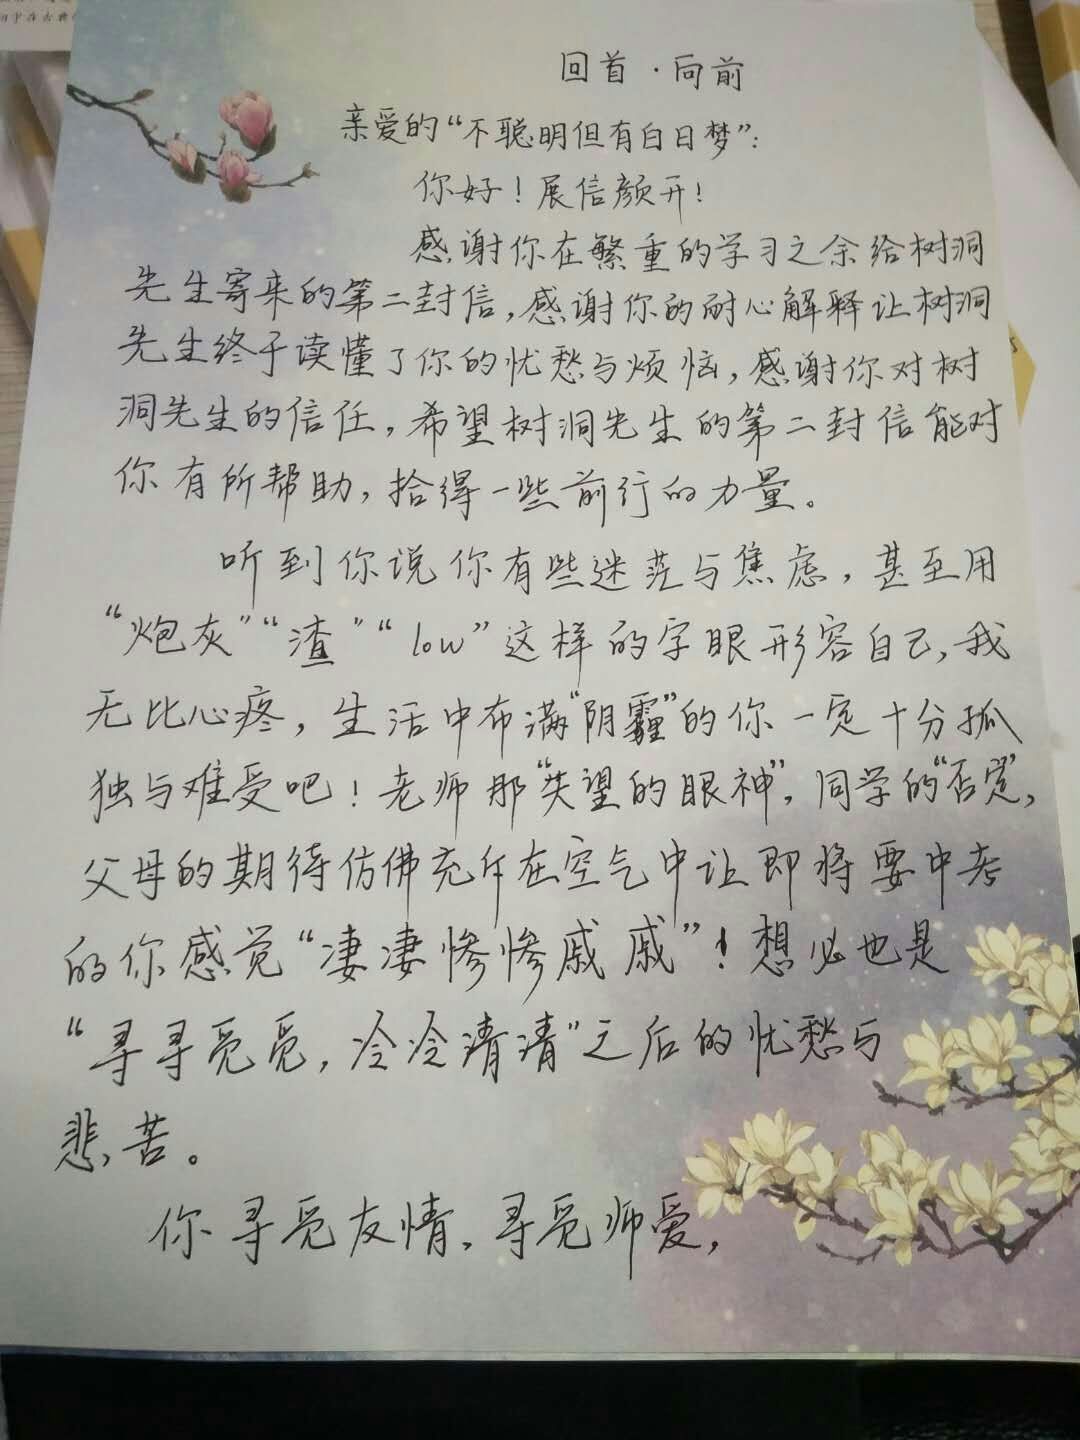 回首·向前
亲爱的“不聪明但有白日梦”：
你好！展信颜开！
感谢你在繁重的学习之余给树洞
先生寄来的第二封信，感谢你的耐心解释让树洞
先生终于读懂了你的忧愁与烦恼，感谢你对树
洞先生的信任，希望树洞先生的第二封信能对
你有所帮助，拾得一些前行的力量。
听到你说你有些迷茫与焦虑，甚至用
“炮灰”“渣”“low”这样的字眼形容自己，我
无比心疼，生活中布满“阴霾”的你一定十分孤
独与难受吧！老师那“失望的眼神”，同学的“否定”，
父母的期待仿佛充斥在空气中让即将要中考
的你感觉“凄凄惨惨戚戚”！想必也是
“寻寻觅觅，冷冷清清”之后的忧愁与
悲苦。
你寻觅友情，寻觅师爱，